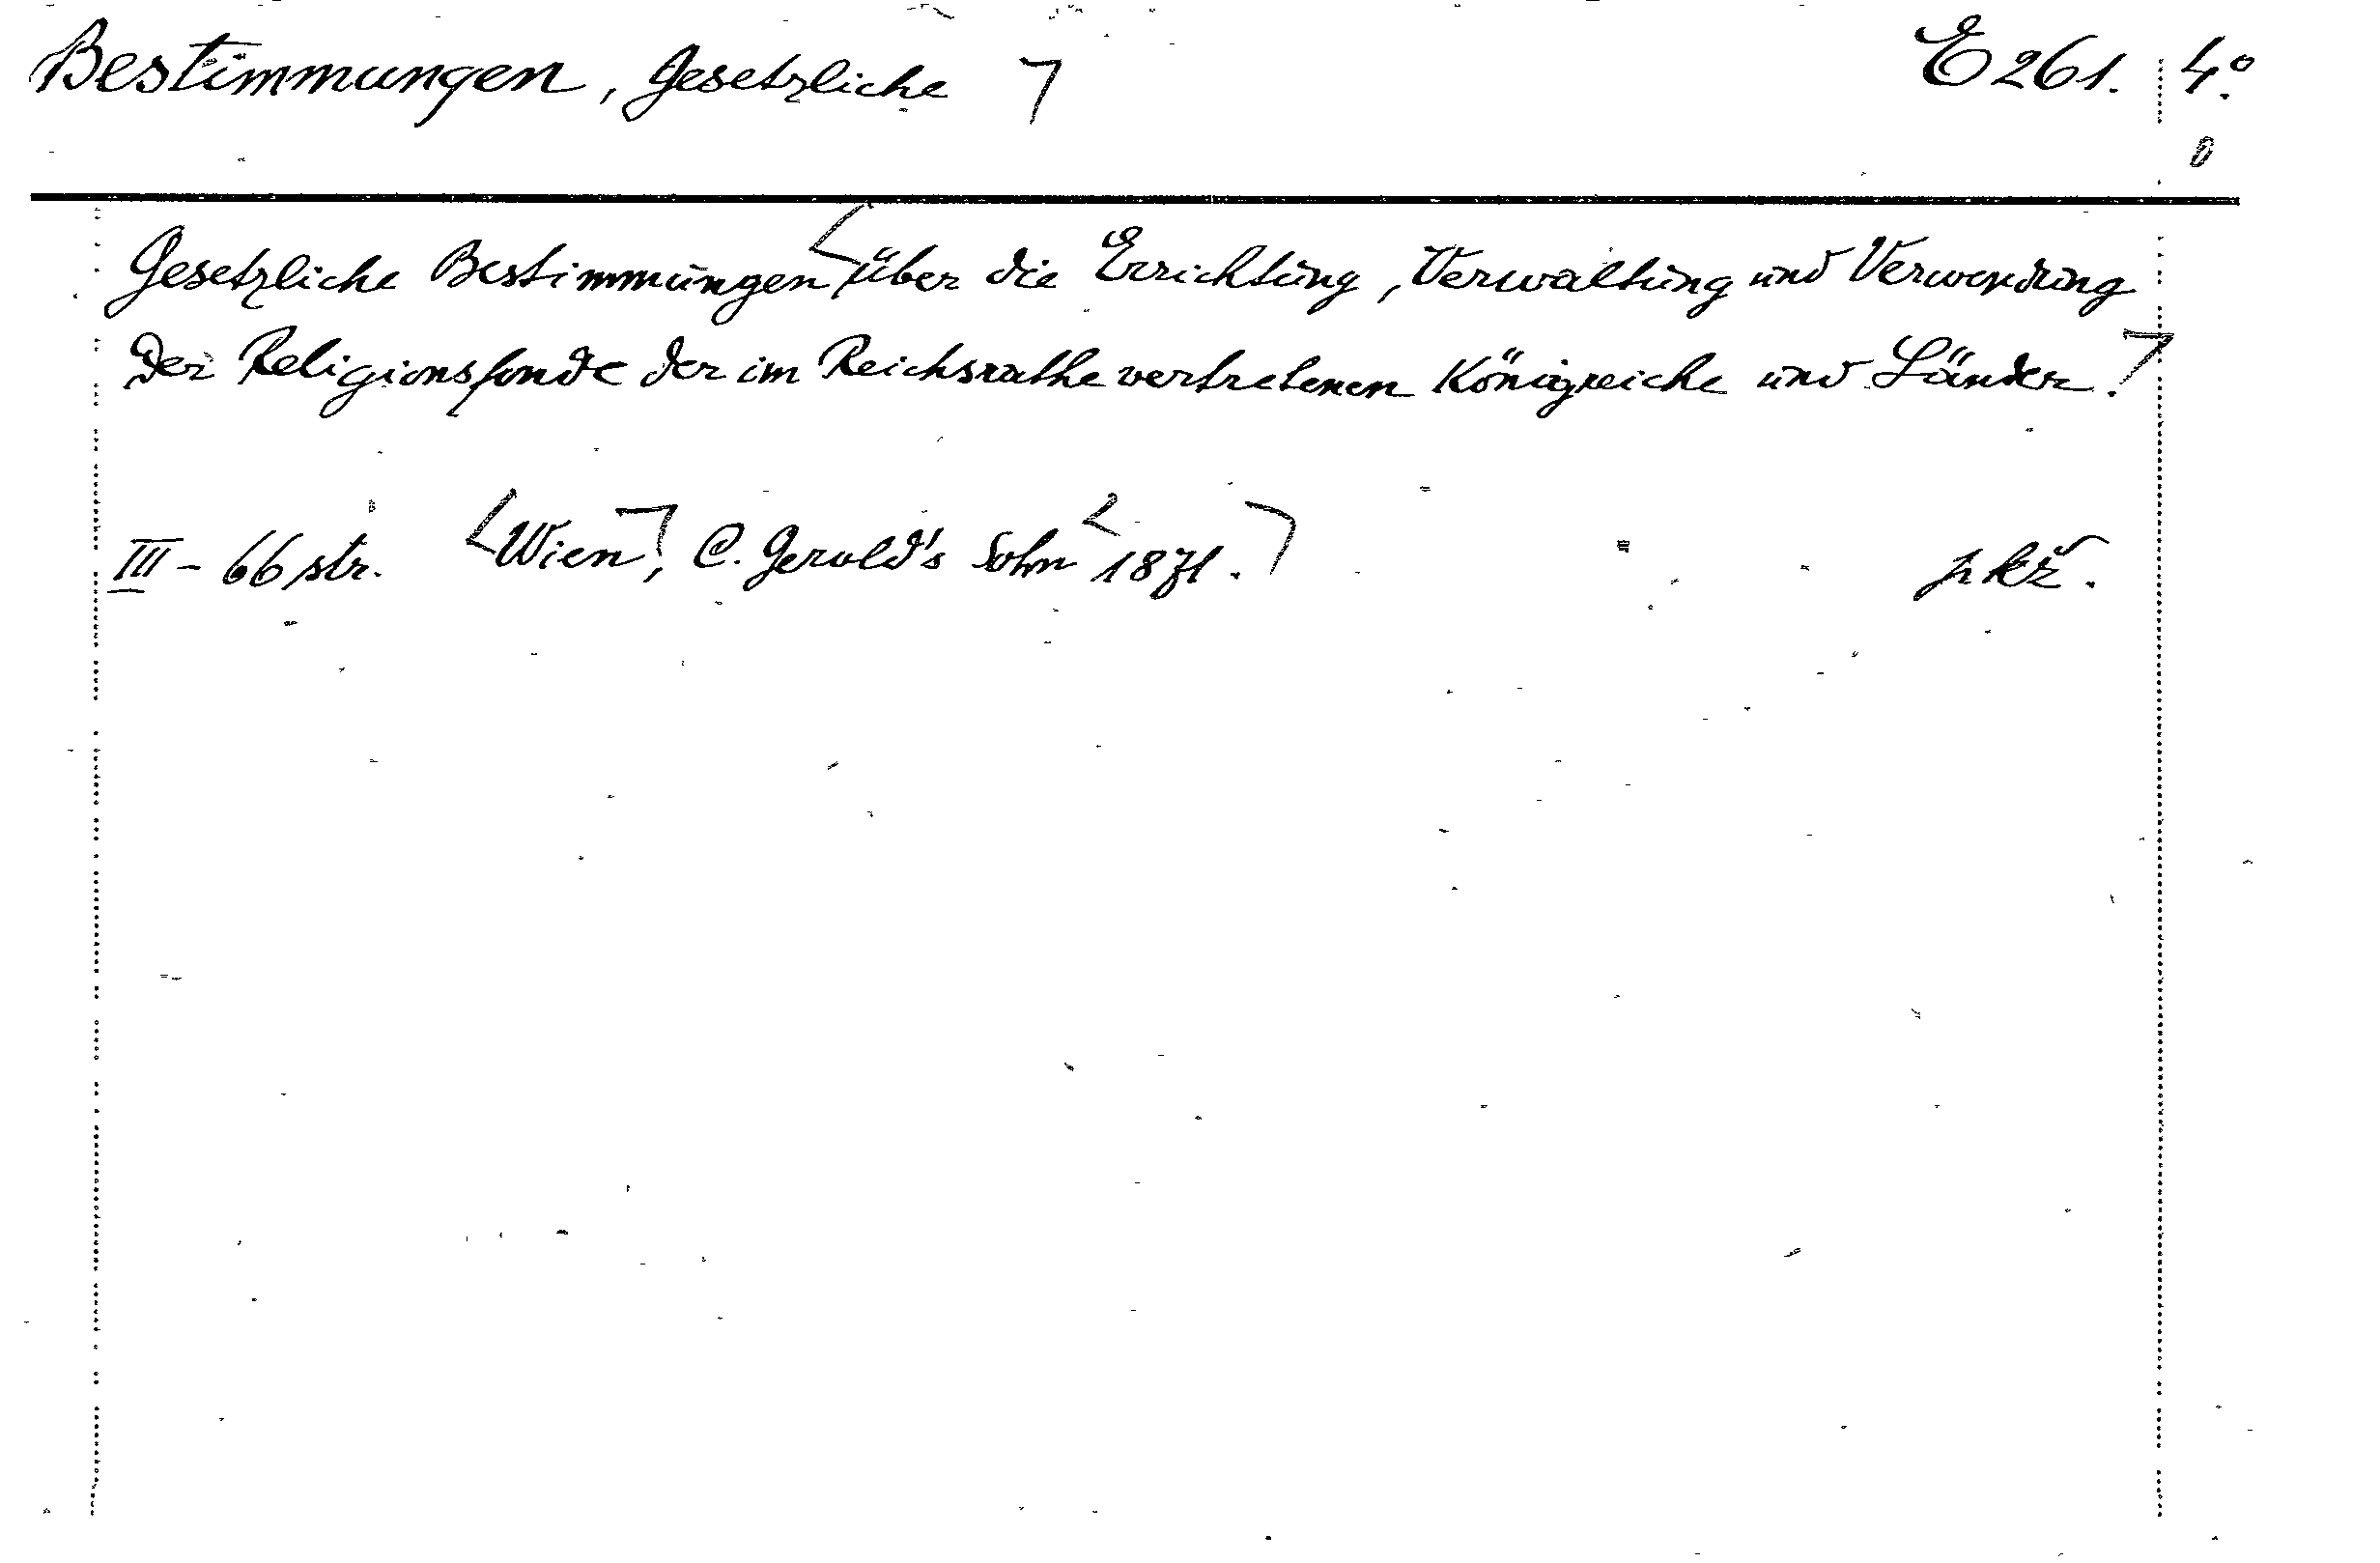 Bestimmungen, Gesetzliche E 261. 4.°
Gesetzliche Bestimmungen über die Errichtung, Verwaltung und Verwendung
der Religionsfonde der im Reichsrathe vertretenen Königreiche und Länder.
III - 66 str. Wien, C. Gerold's Sohn 1871. kž.